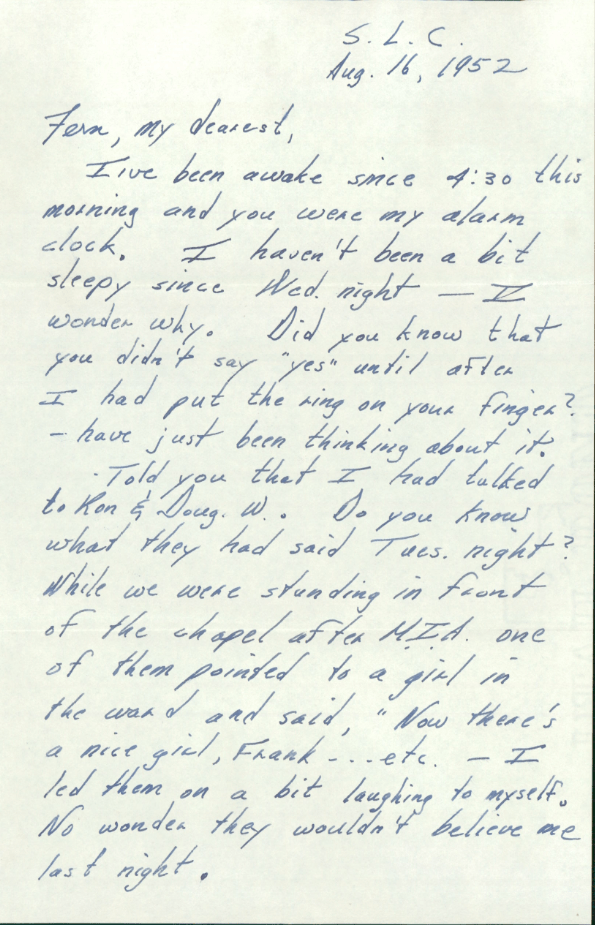 S. L. C.
Aug. 16, 1952
Fern, my dearest,
I've been awake since 4:30 this
morning and you were my alarm
clock. I haven't been a bit
sleepy since Wed. night — I
wonder why. Did you know that
you didn't say "yes" until after
I had put the ring on your finger?
- have just been thinking about it.
Told you that I had talked
to Ron & Doug. W. Do you know
what they had said Tues. night?
While we were standing in front
of the chapel after M.I.A. one
of them pointed to a girl in
the ward and said, "Now there's
a nice girl, Frank ... etc. — I
led them on a bit laughing to myself.
No wonder they wouldn't believe me
last night.